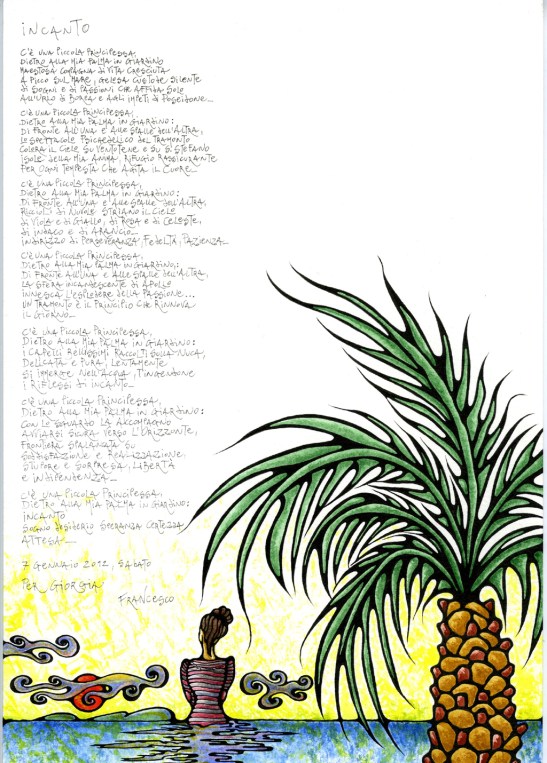 INCANTO
C'è UNA PICCOLA PRINCIPESSA,
DIETRO ALLA MIA PALMA IN GIARDINO
MAESTOSA COMPAGNA di VITA CRESCIUTA
A PICCO SUL MARE, GELOSA CUSTODE SILENTE
di SOGNI E di PASSIONI CHE AFFIDA SOLO
ALL'URLO di BOREA E AGLI IMPETI di POSEIDONE...
C'è UNA PICCOLA PRINCIPESSA,
DIETRO ALLA MIA PALMA IN GIARDINO:
DI FRONTE ALL'UNA E ALLE SPALLE DELL'ALTRA,
LO SPETTACOLO PSICHEDELICO DEL TRAMONTO
COLORA IL CIELO SU VENTOTENE E SU S. STEFANO
ISOLE DELLA MIA ANIMA, RIFUGIO RASSICURANTE
PER OGNI TEMPESTA CHE AGITA IL CUORE...
C'è UNA PICCOLA PRINCIPESSA,
DIETRO ALLA MIA PALMA IN GIARDINO:
DI FRONTE ALL'UNA E ALLE SPALLE DELL'ALTRA,
RICCIOLI DI NUVOLE STRIANO IL CIELO
di VIOLA E di GIALLO, di ROSA E di CELESTE,
di INDACO E di ARANCIO...
INDIRIZZO di PERSEVERANZA, FEDELTÀ, PAZIENZA...
C'è UNA PICCOLA PRINCIPESSA,
DIETRO ALLA MIA PALMA IN GIARDINO:
DI FRONTE ALL'UNA E ALLE SPALLE DELL'ALTRA,
LA SFERA INCANDESCENTE DI APOLLO
INNESCA L'ESPLODERE DELLA PASSIONE...
UN TRAMONTO È IL PRINCIPIO CHE RINNOVA
IL GIORNO...
C'è UNA PICCOLA PRINCIPESSA,
DIETRO ALLA MIA PALMA IN GIARDINO:
I CAPELLI BELLISSIMI RACCOLTI SULLA NUCA,
DELICATA E PURA, LENTAMENTE
SI IMMERGE NELL'ACQUA, TINGENDONE
I RIFLESSI DI INCANTO...
C'è UNA PICCOLA PRINCIPESSA,
DIETRO ALLA MIA PALMA IN GIARDINO:
CON LO SGUARDO LA ACCOMPAGNO
AVVIARSI SICURA VERSO L'ORIZZONTE,
FRONTIERA SPALANCATA SU
SODDISFAZIONE E REALIZZAZIONE,
STUPORE E SORPRESA, LIBERTÀ
E INDIPENDENZA...
C'è UNA PICCOLA PRINCIPESSA,
DIETRO ALLA MIA PALMA IN GIARDINO:
INCANTO
SOGNO DESIDERIO SPERANZA CERTEZZA
ATTESA...
7 GENNAIO 2012, SABATO
PER GIORGIA
FRANCESCO